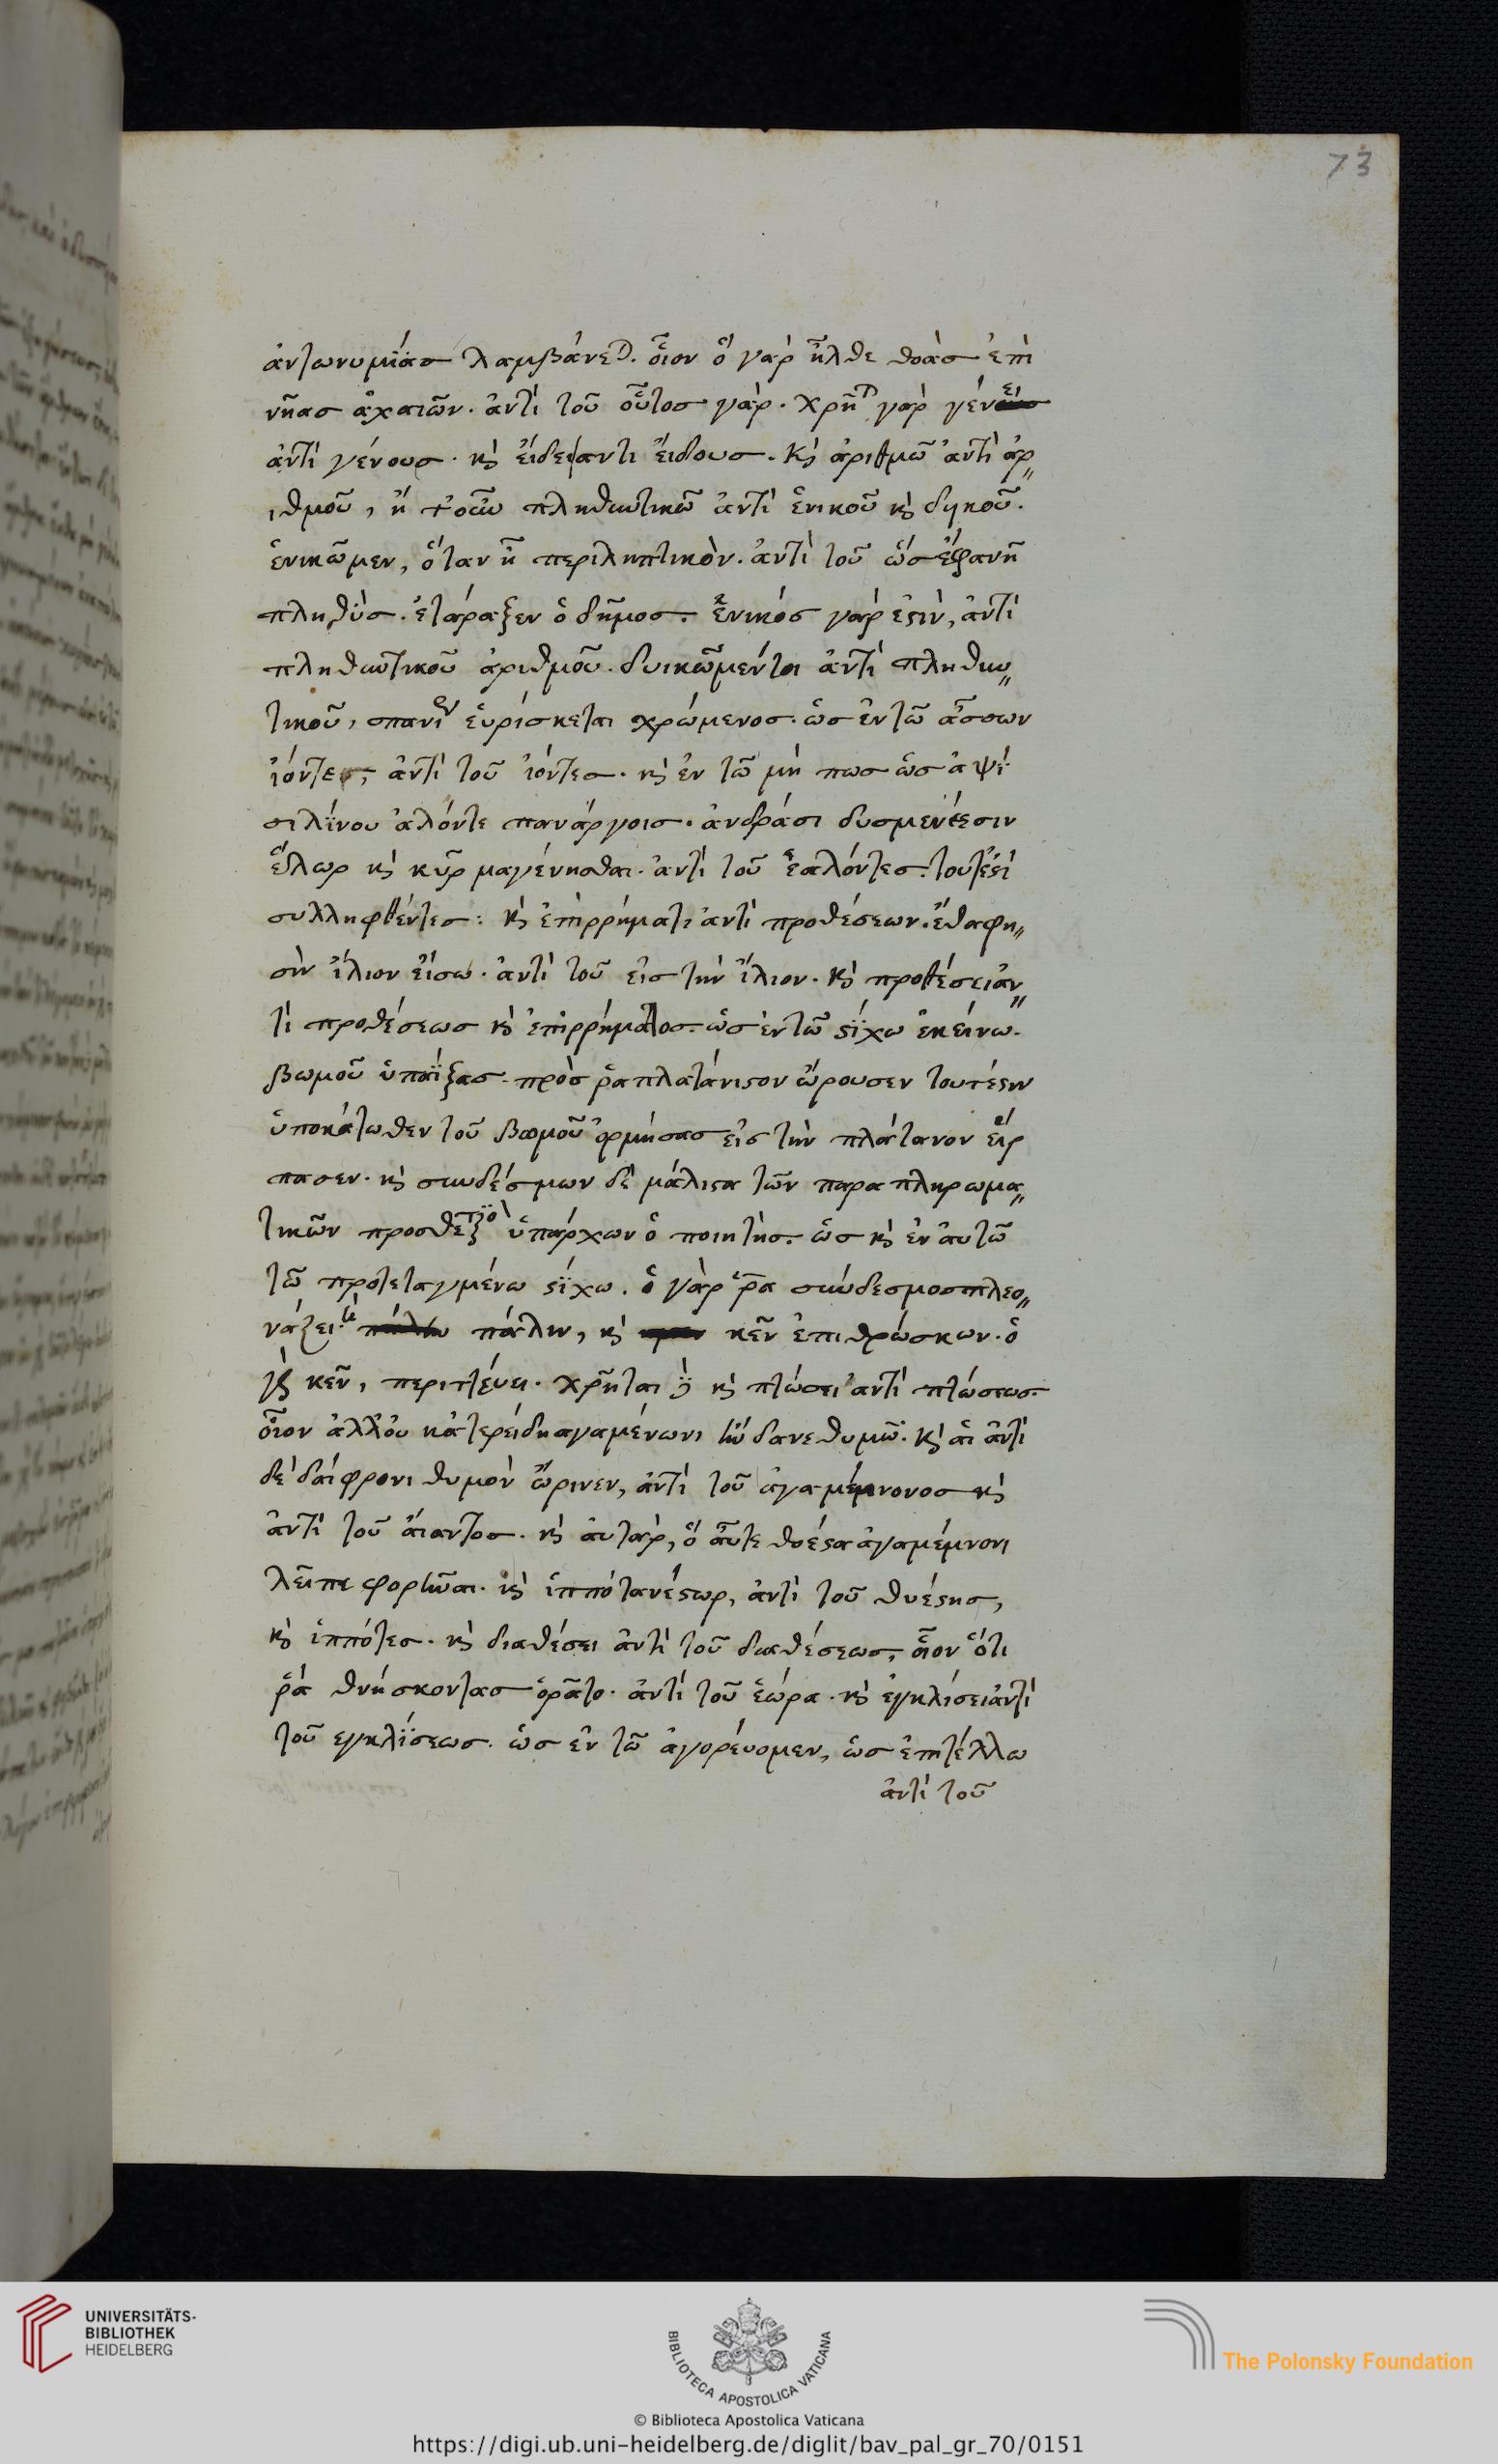 73
ἀντωνυμίας λαμβάνεται. οἷον ὁ γὰρ ἦλθε θοὰς ἐπὶ
νῆας ἀχαιῶν. ἀντὶ τοῦ οὗτος γάρ. χρῆται γὰρ γένει
ἀντὶ γένους. καὶ εἴδει ἀντὶ εἴδους. καὶ ἀριθμῶ ἀντὶ ἀρ
ιθμοῦ, ἢ πληθυντικῶ ἀντὶ ἑνικοῦ καὶ δυικοῦ.
ἑνικῶ μεν, ὅταν ἦ περιληπτικὸν. ἀντὶ τοῦ ὡς ἐφανῆ
πληθὺς. ἐτάραξεν ὁ δῆμος. ἑνικός γάρ ἐστιν, ἀντὶ
πληθυντικοῦ ἀριθμοῦ. δυικῶ μέντοι ἀντὶ πληθυν
τικοῦ, σπανίον εὑρίσκεται χρώμενος. ὡς ἐν τῶ ἆσσων
ἰόντες, ἀντὶ τοῦ ἰόντες. καὶ ἐν τῶ μή πως ὡς ἀψί
σι λίνου ἁλόντε πανάργοις. ἀνδράσι δυσμενέεσιν
ἕλωρ καὶ κῦρμα γένησθαι. ἀντὶ τοῦ ἑαλόντες. τουτέστι
συλληφθέντες: καὶ ἐπιρρήματι ἀντὶ προθέσεων. ἔθαφη
σὶν ἴλιον εἴσω. ἀντὶ τοῦ εἰς τὴν ἴλιον. καὶ προθέσει ἀν
τὶ προθέσεως καὶ ἐπιρρήματος. ὡς ἐν τῶ στίχω ἐκείνω.
βωμοῦ ὑπαΐξας. πρὸς ῥα πλατάνιστον ὤρουσεν τουτέστιν
ὑποκάτωθεν τοῦ βωμοῦ ὁρμήσας εἰς τὴν πλάτανον εἵρ
πασεν. καὶ συνδέσμων δὲ μάλιστα τῶν παραπληρωμα
τικῶν ὑπάρχων ὁ ποιητὴς. ὡς καὶ ἐν αὐτῶ
τῶ προτεταγμένω στίχω. ὁ γὰρ ῥα σύνδεσμος πλεο
νάζει. πάλιν, καὶ κεῦν ἐπιθρώσκων. ὁ
γὰρ κεῦν, περιττεύει. χρῆται δὲ καὶ πτώσει ἀντὶ πτώσεως
οἷον ἀλλ' οὐκ ἀτρείδη ἀγαμέμνωνι ἥνδανε θυμῶ. καὶ αἴαντι
δὲ δαίφρονι θυμὸν ὤρινεν, ἀντὶ τοῦ ἀγαμέμνονος καὶ
ἀντὶ τοῦ αἴαντος. καὶ αὐτὰρ, ὁ αὖτε θυέστα ἀγαμέμνονι
λεῖπε φορῆναι. καὶ ἱππότα νέστωρ, ἀντὶ τοῦ θυέστης,
καὶ ἱππότες. καὶ διαθέσει ἀντὶ τοῦ διαθέσεως, οἷον ὅτι
ῥά θνήσκοντας ὁρᾶτο. ἀντὶ τοῦ ἑώρα. καὶ ἐγκλίσει ἀντὶ
τοῦ ἐγκλίσεως. ὡς ἐν τῶ ἀγορεύομεν, ὡς ἐπιτέλλω
ἀντὶ τοῦ
UNIVERSITÄTS-
BIBLIOTHEK
HEIDELBERG
BIBLIOTECA APOSTOLICA VATICANA
The Polonsky Foundation
© Biblioteca Apostolica Vaticana
https://digi.ub.uni-heidelberg.de/diglit/bav_pal_gr_70/0151